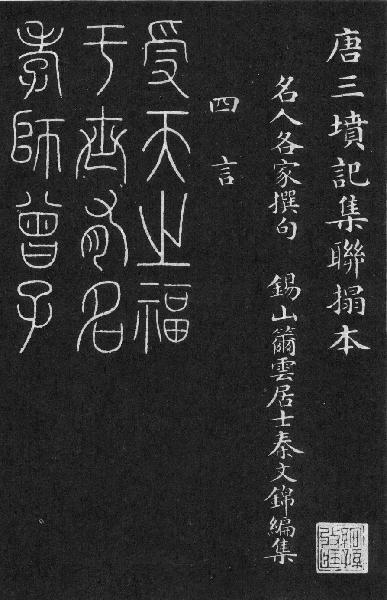 唐三墳記集聯搨本
名人各家撰句 錫山籋雲居士秦文錦編集
四言
受天之福
于齊有名
孝師曾子